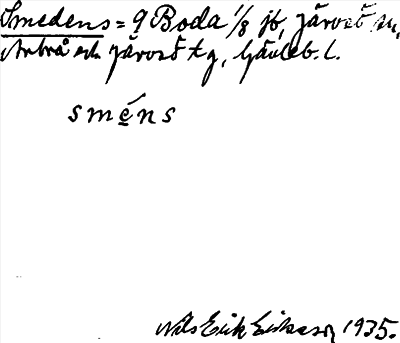 Smedens = 9 Boda 1/8 jb, Järvsö sn,
Arbrå och Järvsö tg, Gävleb. l.
sméns
Nils Erik Eriksson 1935.